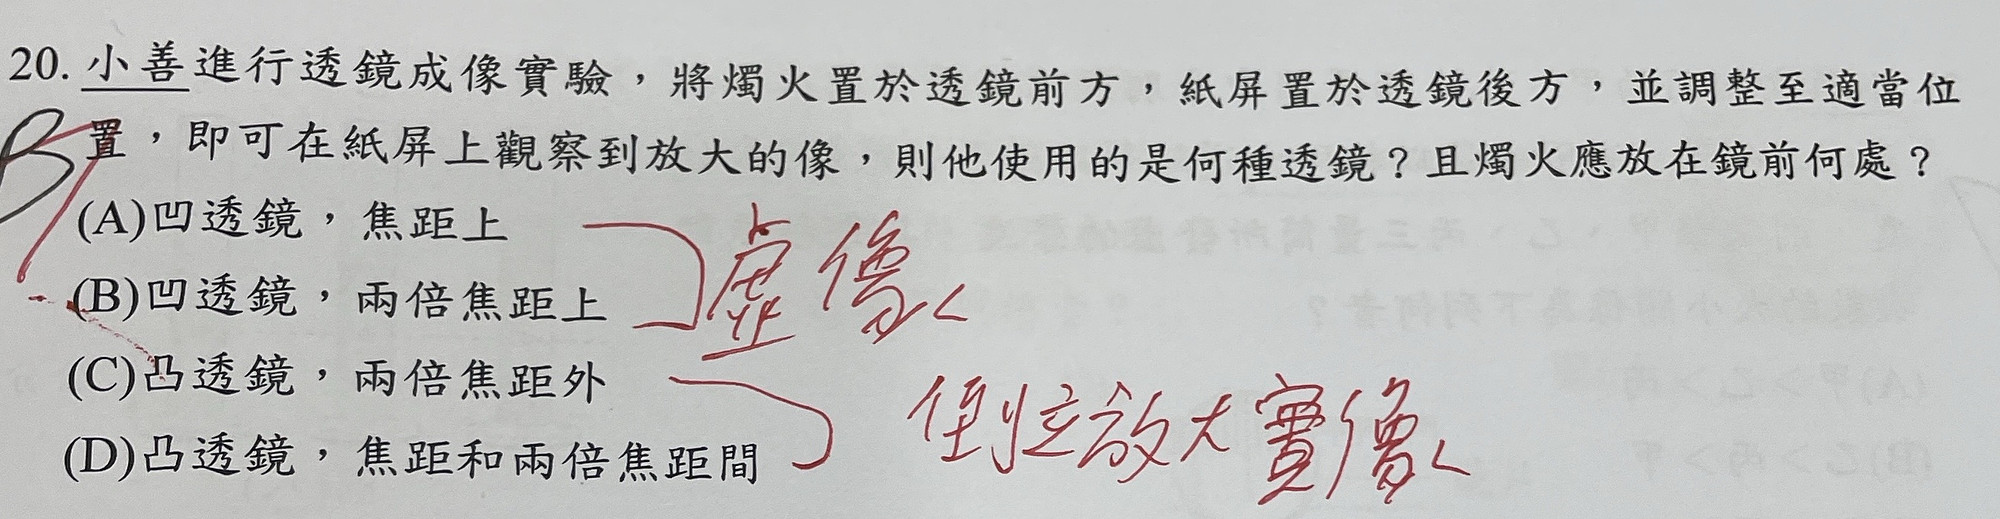 20. 小善進行透鏡成像實驗，將燭火置於透鏡前方，紙屏置於透鏡後方，並調整至適當位
B
置，即可在紙屏上觀察到放大的像，則他使用的是何種透鏡？且燭火應放在鏡前何處？
(A)凹透鏡，焦距上
(B)凹透鏡，兩倍焦距上
虛像
(C)凸透鏡，兩倍焦距外
(D)凸透鏡，焦距和兩倍焦距間
倒立放大實像